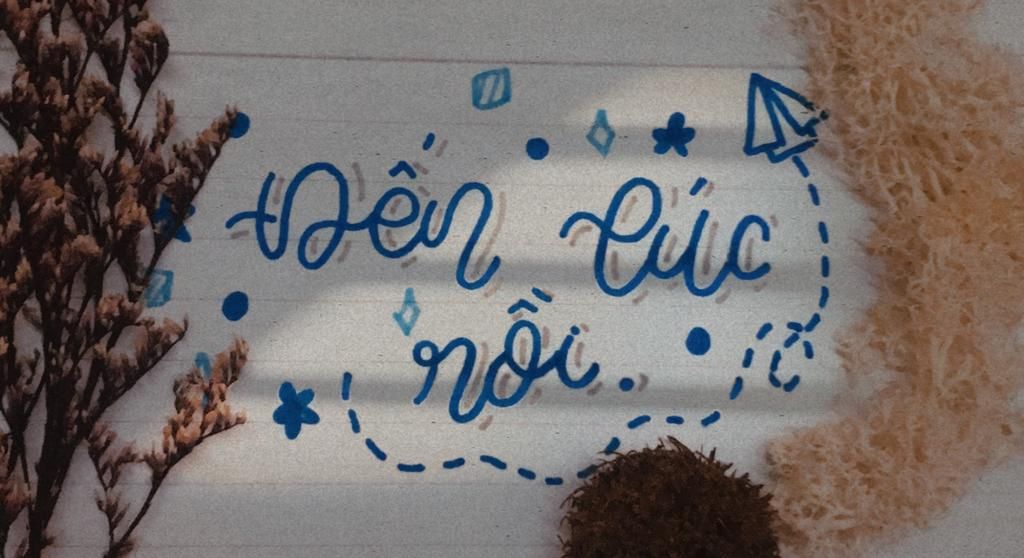 Đến lúc
rồi.